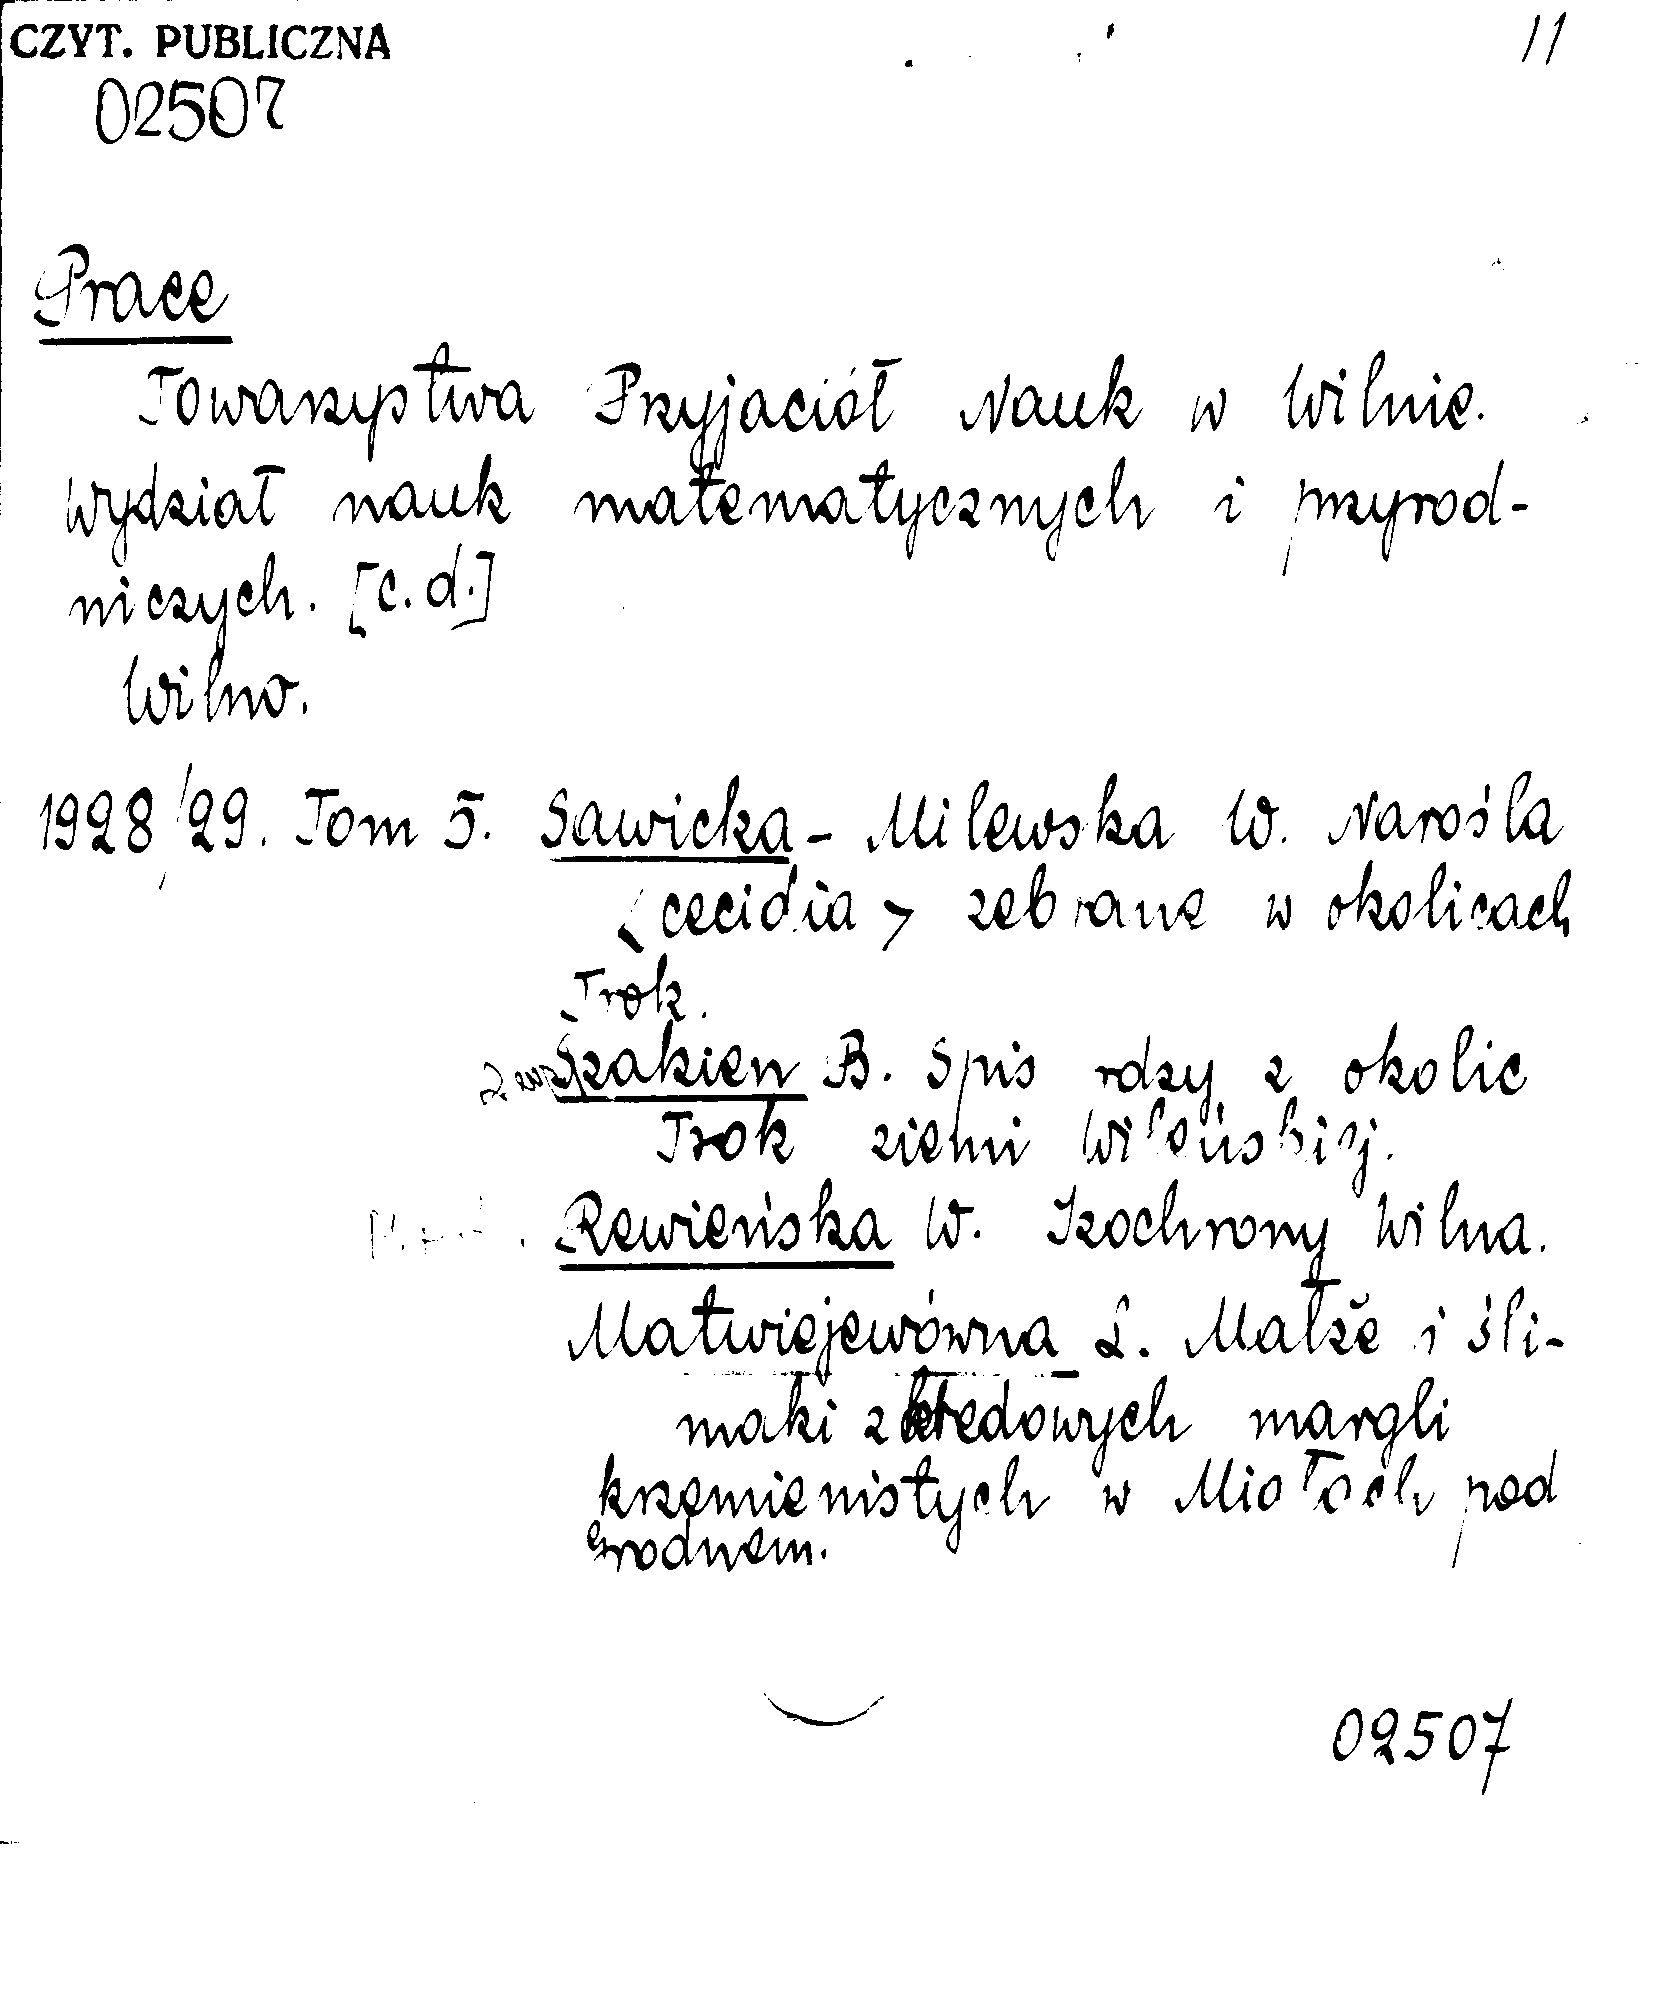 CZYT. PUBLICZNA
11
02507
Prace
Towarzystwa Przyjaciół Nauk w Wilnie.
Wydział nauk matematycznych i przyrod-
niczych. [c.d.]
Wilno.
1928/29. Tom 5. Sawicka - Milewska W. Narośla
<cecidia> zebrane w okolicach
Trok.
Szakien B. Spis rdzy z okolic
Trok ziemi Wileńskiej.
Rewieńska W. Izochrony Wilna.
Matwiejewówna L. Małże i śli-
maki z kredowych margli
krzemienistych w Miołach pod
Grodnem.
02507